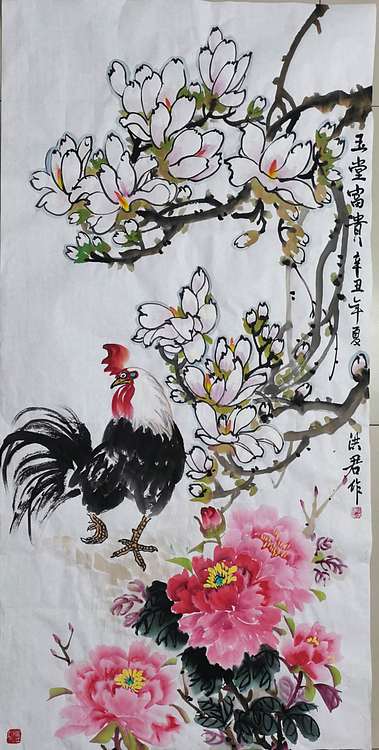 玉堂富贵辛丑年夏
洪君作